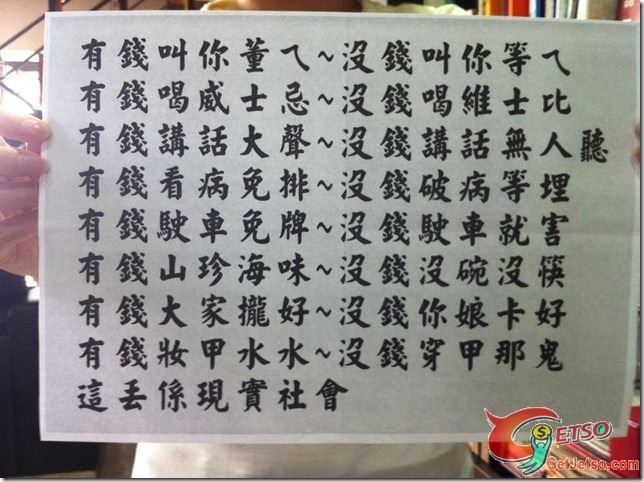 有錢叫你董ㄟ~沒錢叫你等ㄟ
有錢喝威士忌~沒錢喝維士比
有錢講話大聲~沒錢講話無人聽
有錢看病免排~沒錢破病等埋
有錢駛車免牌~沒錢駛車就害
有錢山珍海味~沒錢沒碗沒筷
有錢大家攏好~沒錢你娘卡好
有錢妝甲水水~沒錢穿甲那鬼
這丟係現實社會
GETSO
GetJetso.com